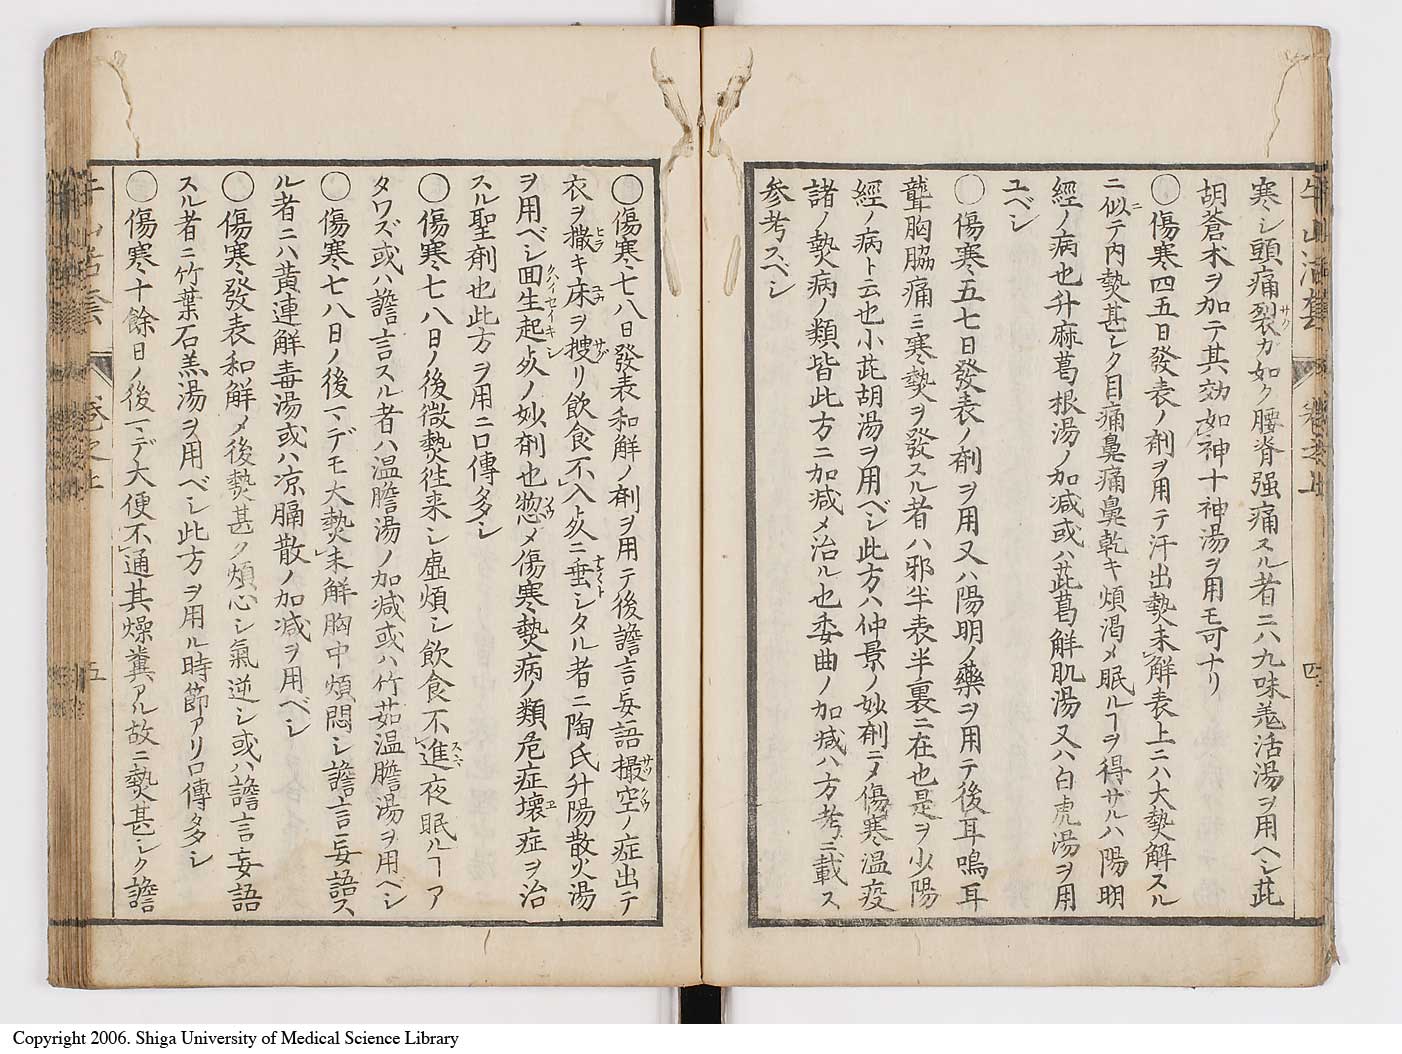 牛山活套 卷之上 四
寒シ頭痛裂カ如ク腰脊强痛スル者ニハ九味羗活湯ヲ用ヘシ茈
胡蒼朮ヲ加テ其効如神十神湯ヲ用モ可ナリ
○傷寒四五日發表ノ剤ヲ用テ汗出𤍠未解表上ニハ大𤍠解スル
ニ似テ内𤍠甚シク目痛鼻痛鼻乾キ煩渴メ眠ルヿヲ得ザルハ陽明
經ノ病也升麻葛根湯ノ加减或ハ茈葛解肌湯又ハ白虎湯ヲ用
ユベシ
○傷寒五七日發表ノ剤ヲ用又ハ陽明ノ藥ヲ用テ後耳鳴耳
聾胸脇痛ミ寒𤍠ヲ發スル者ハ邪半表半裏ニ在也是ヲ少陽
經ノ病ト云也小茈胡湯ヲ用ベシ此方ハ仲景ノ妙剤ニメ傷寒温疫
諸ノ𤍠病ノ類皆此方ニ加减メ治ル也委曲ノ加减ハ方考ニ載ス
参考スベシ
○傷寒七八日發表和解ノ剤ヲ用テ後譫言妄語撮空ノ症出テ
衣ヲ撒キ床ヲ捜リ飲食不入死ニ垂ントシタル者ニ陶氏升陽散火湯
ヲ用ベシ回生起死ノ妙剤也惣メ傷寒𤍠病ノ類危症壊症ヲ治
スル聖剤也此方ヲ用ニ口傳多シ
○傷寒七八日ノ後微𤍠徃来シ虚煩シ飲食不進夜眠ルヿア
タワズ或ハ譫言スル者ハ温膽湯ノ加减或ハ竹茹温膽湯ヲ用ヘシ
○傷寒七八日ノ後マデモ大𤍠未解胸中煩悶シ譫言妄語ス
ル者ニハ黄連解毒湯或ハ凉膈散ノ加减ヲ用ベシ
○傷寒發表和解メ後𤍠甚ク煩心シ氣逆シ或ハ譫言妄語
スル者ニ竹葉石羔湯ヲ用ベシ此方ヲ用ル時節アリ口傳多シ
○傷寒十餘日ノ後マデ大便不通其燥糞アル故ニ𤍠甚シク譫
牛山活套 卷之上 五
Copyright 2006. Shiga University of Medical Science Library